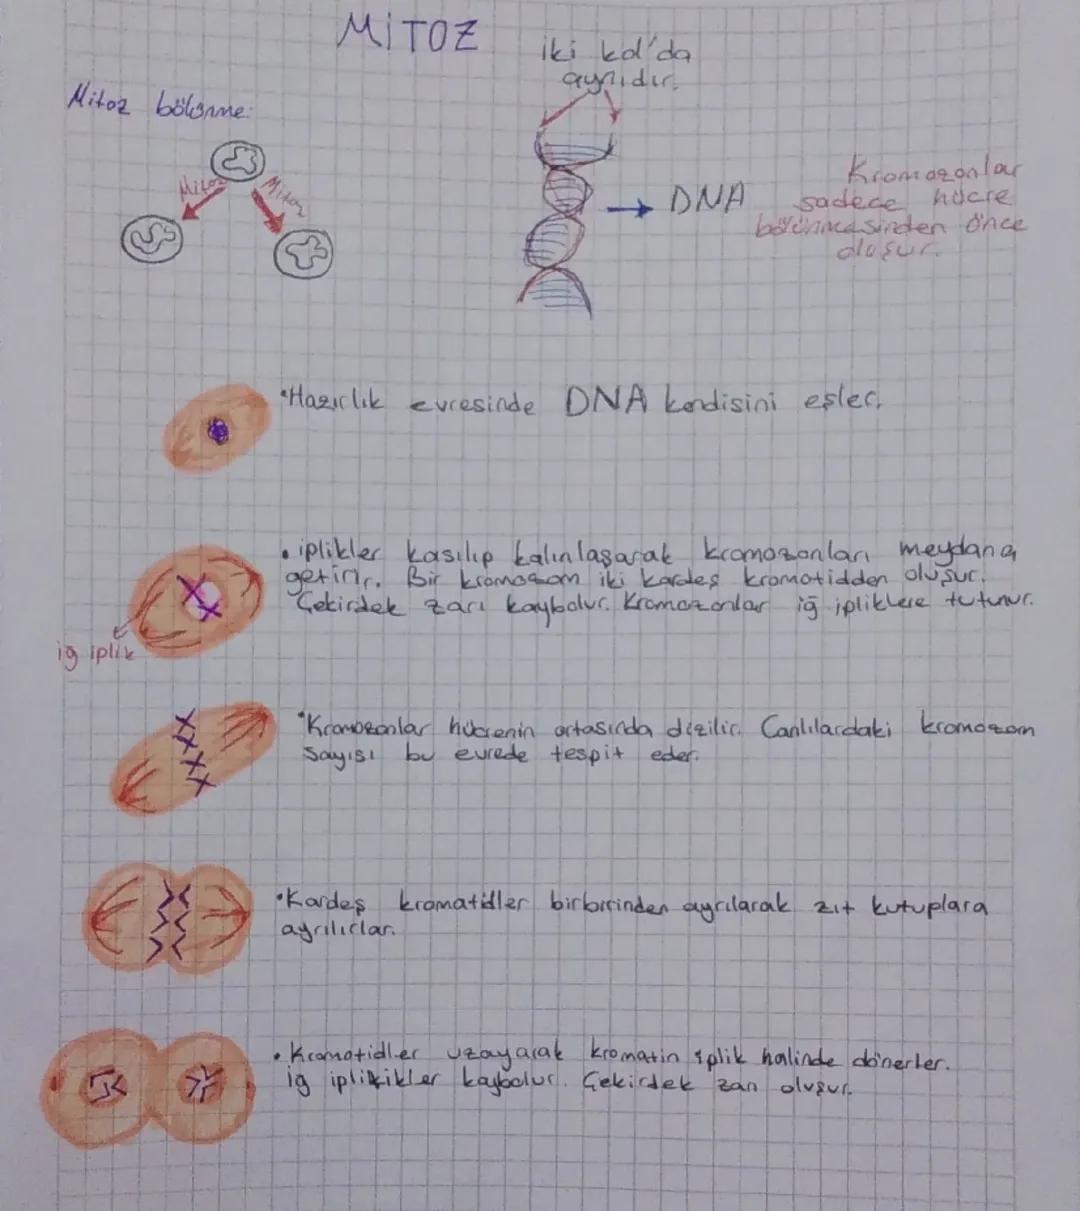 MİTOZ
iki kol'da
aynıdır.
Mitoz bölünme:
Mitoz
Mitoz
DNA
Kromozonlar
sadece hücre
bölünmesinden önce
oluşur.
•Hazırlık evresinde DNA kendisini eşler.
• iplikler kasılıp kalınlaşarak kromozonları meydana
getirir. Bir kromozom iki kardeş kromotidden oluşur.
Çekirdek zarı kaybolur. Kromozonlar iğ ipliklere tutunur.
iğ iplik
•Kromozonlar hücrenin ortasında dizilir. Canlılardaki kromozom
sayısı bu evrede tespit eder.
•Kardeş kromatidler birbirinden ayrılarak zıt kutuplara
ayrılırlar.
• Kromotidler uzayarak kromatin iplik halinde dönerler.
iğ iplikikler kaybolur. Çekirdek zarı oluşur.